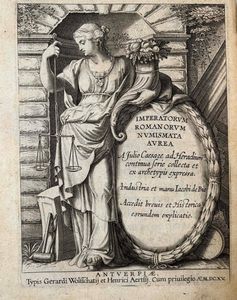 IMPERATORVM
ROMANORVM
NVMISMATA
AVREA
A Julio Caesare ad Heraclium
continua serie collecta et
ex archetypis expressa.
Industria et manu Iacobi de Bie
Accedit brevis et Historica
eorundem explicatio.
ANTVERPIÆ,
Typis Gerardi Wolsschatij et Henrici Aertsij. Cum privilegio. M.DC.XV.